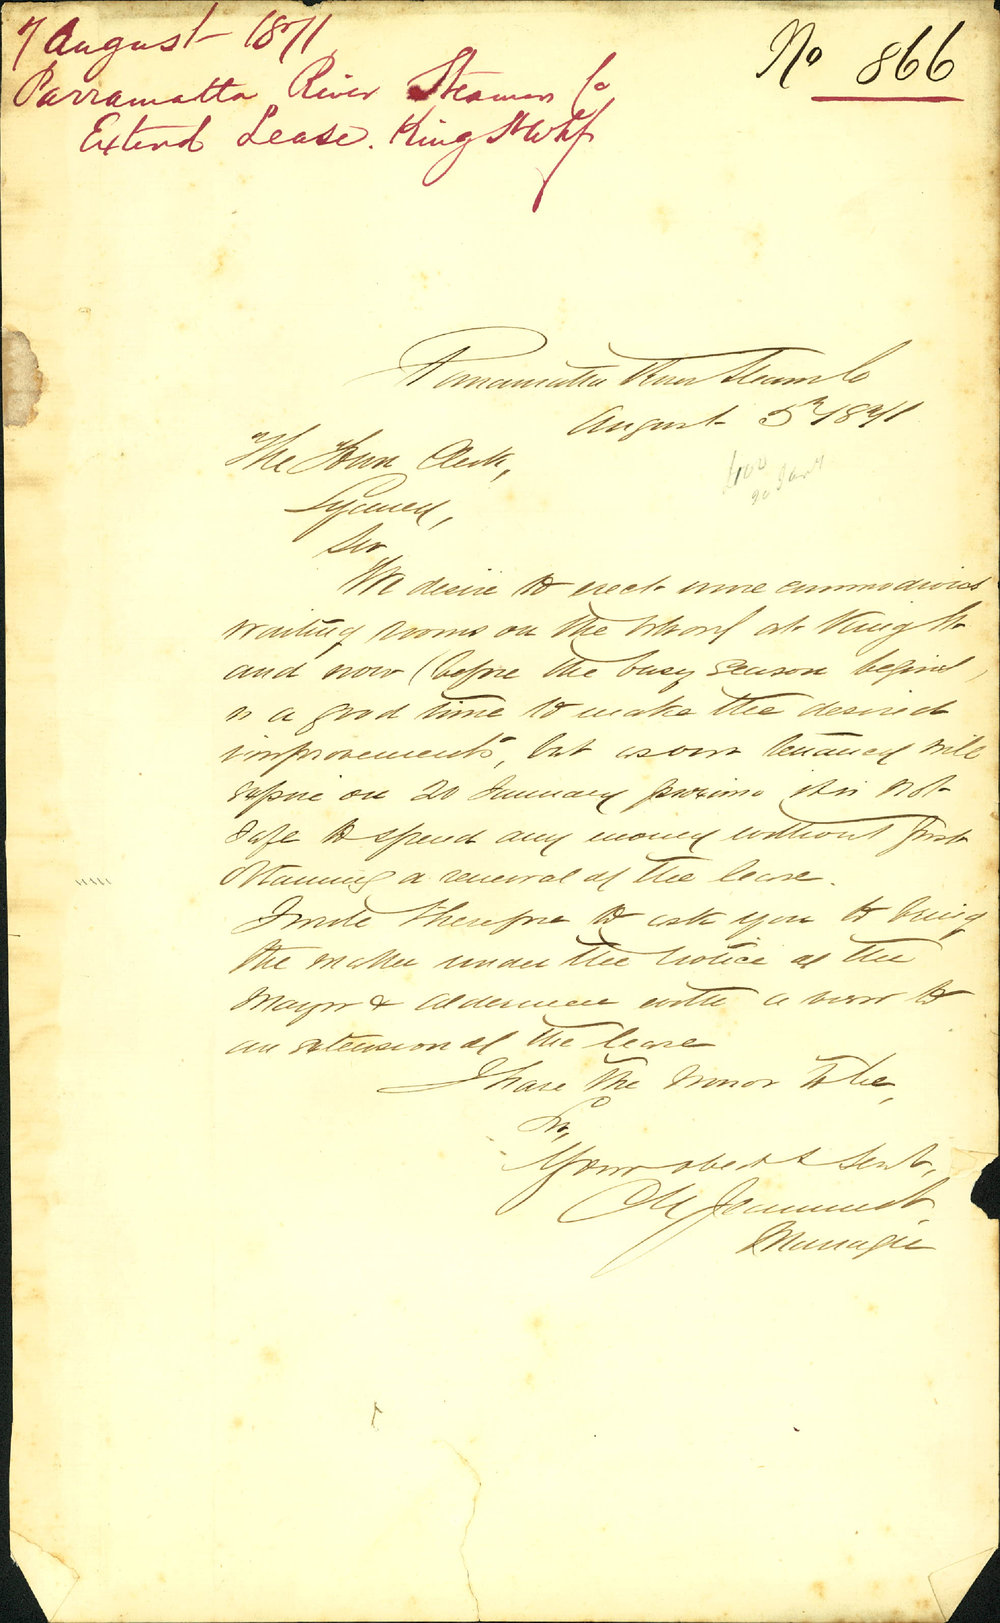 7 August 1871
No 866
Parramatta River Steamers Co
Extend Lease. King St Whf
Parramatta River Steam Co
August 5th 1871
The Town Clerk,
Sydney,
Sir,
We desire to erect more commodious
waiting rooms on the Wharf at King St
and now (before the busy season begins)
is a good time to make the desired
improvements, but as our tenancy will
expire on 20 January proximo it is not
safe to spend any money without first
obtaining a renewal of the lease.
I write therefore to ask you to bring
the matter under the notice of the
Mayor & Aldermen with a view to
an extension of the lease
I have the honor to be,
Sir,
Your obedt Servt,
Manager